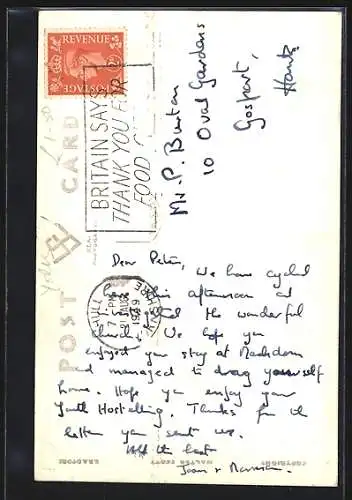 REVENUE
POSTAGE
BRITAIN SAYS
THANK YOU FOR
FOOD
POST CARD
Mr. P. Burton
10 Oval Gardens
Gosport,
Hants
HULL
YORKSHIRE
PM
AUG
1949
Dear Peter,
We have cycled
this afternoon
the wonderful
church. We hope you
enjoyed your stay at
and managed to drag yourself
home. Hope you enjoy your
Youth Hostelling. Thanks for the
letter you sent us.
All the best
Joan +
COPYRIGHT
WALTER SCOTT
BRADFORD